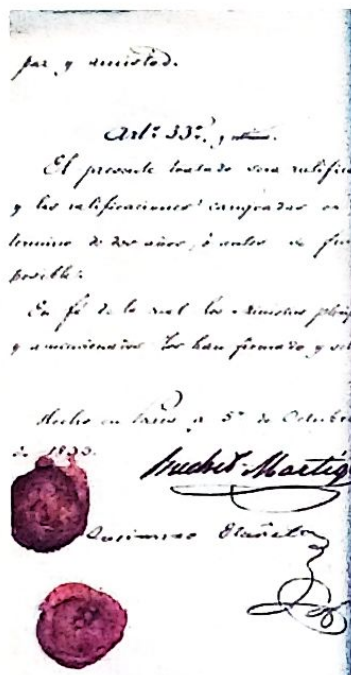 paz y amistad.
Art.º 33.º y
El presente tratado sera ratific
y las ratificaciones cangeadas en
termino de dos años, ó antes se fue
posible.
En fé de lo cual los Ministros plenip
y los han firmado y sel
Hecho en Paris a 5 de Octubre
de
Martig